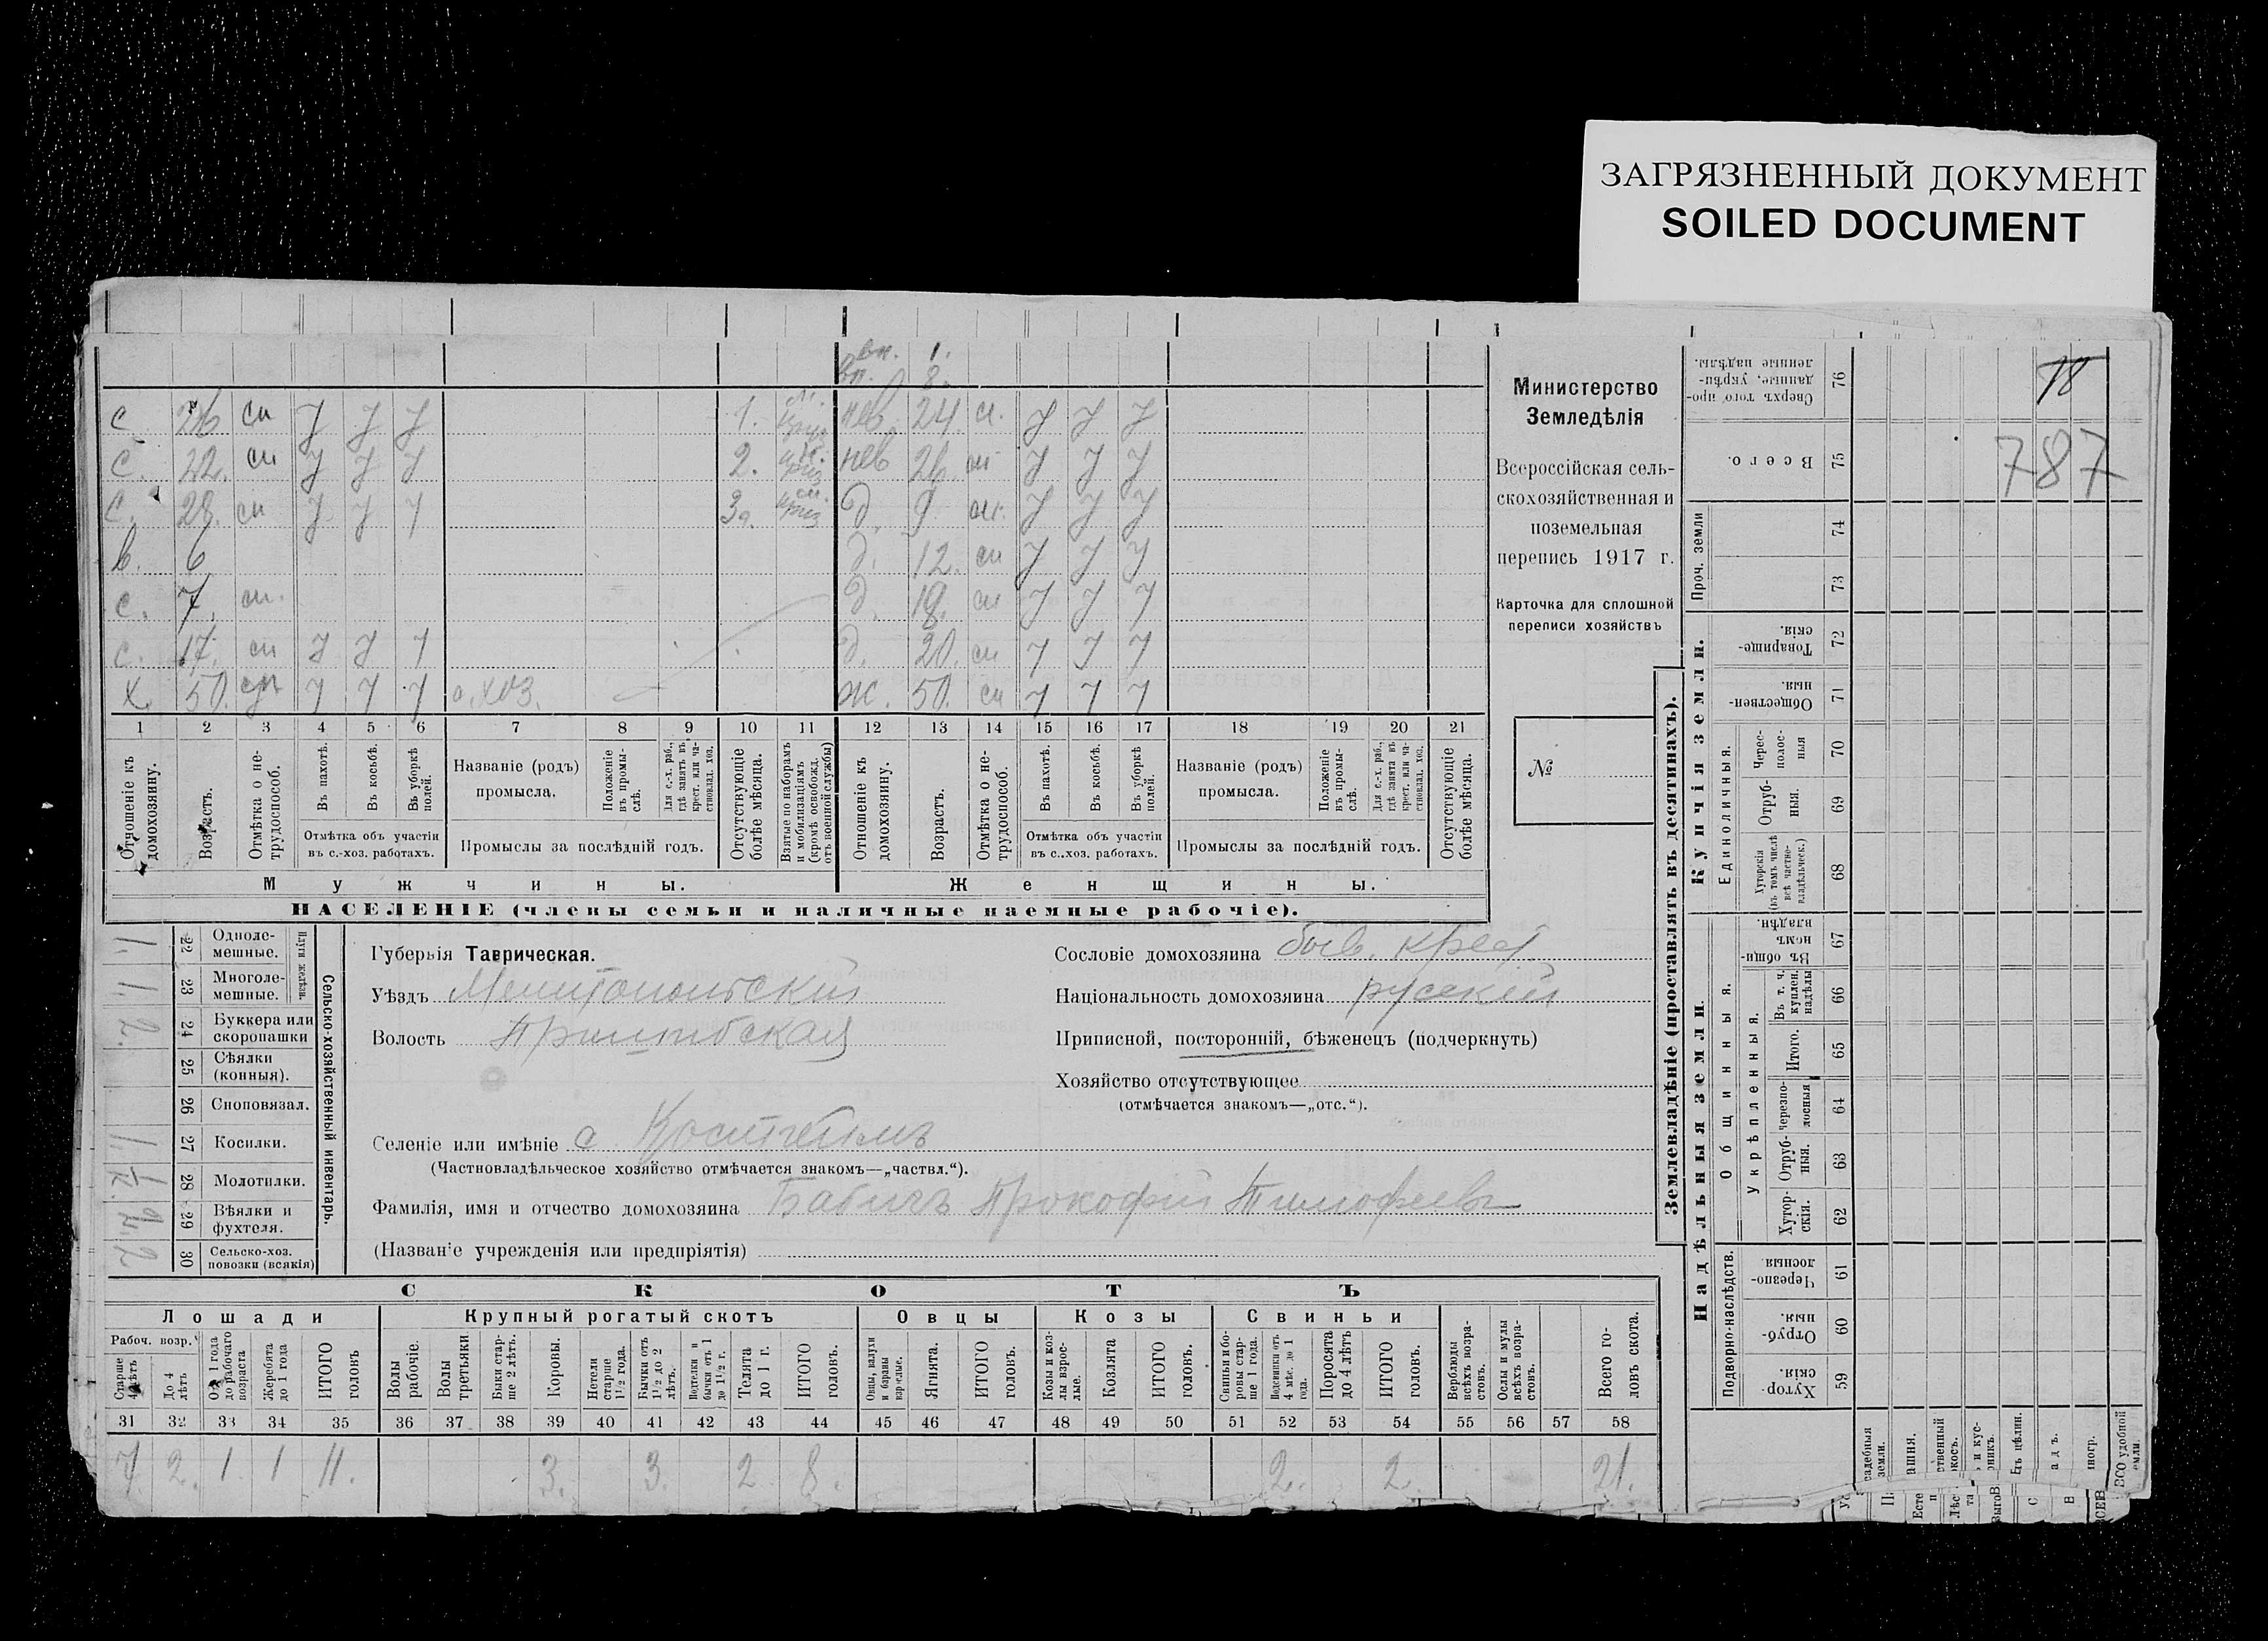 ЗАГРЯЗНЕННЫЙ ДОКУМЕНТ
SOILED DOCUMENT
вн. 1.
вп. 8.
с. 26 сп У У У 1. нев. 24. сп. У У У
с. 22. сп У У У 2. приз нев 26. сп У У У
с. 28. сп У У У 3 приз д. 9 сп. У У У
в. 6 д. 12. сп У У У
с. 7. сп. д. 18. сп У У У
с. 17. сп У У У д. 20. сп У У У
х 50. сп У У У с. хоз. ж. 50. сп У У У
1 2 3 4 5 6 7 8 9 10 11 12 13 14 15 16 17 18 19 20 21
Отношеніе къ домохозяину.
Возрастъ.
Отмѣтка о нетрудоспособ.
Въ пахотѣ.
Въ косьбѣ.
Въ уборкѣ полей.
Отмѣтка объ участіи въ с.-хоз. работахъ.
Названіе (родъ) промысла.
Положеніе въ промыслѣ.
Для с.-х. раб., гдѣ занятъ въ крест. или частновлад. хоз.
Промыслы за послѣдній годъ.
Отсутствующіе болѣе мѣсяца.
Взятые по наборамъ и мобилизаціямъ (кромѣ освобожд. отъ военной службы)
Отношеніе къ домохозяину.
Возрастъ.
Отмѣтка о нетрудоспособ.
Въ пахотѣ.
Въ косьбѣ.
Въ уборкѣ полей.
Отмѣтка объ участіи въ с.-хоз. работахъ.
Названіе (родъ) промысла.
Положеніе въ промыслѣ.
Для с.-х. раб., гдѣ занята въ крест. или частновлад. хоз.
Промыслы за послѣдній годъ.
Отсутствующіе болѣе мѣсяца.
Мужчины. Женщины.
НАСЕЛЕНІЕ (члены семьи и наличные наемные рабочіе).
Министерство
Земледѣлія
Всероссійская сель-
скохозяйственная и
поземельная
перепись 1917 г.
Карточка для сплошной
переписи хозяйствъ
№
Сельско-хозяйственный инвентарь.
Плуги желѣзн.
1. 22 Одноле-мешные.
1. 23 Многоле-мешные.
2. 24 Буккера или скоропашки
25 Сѣялки (конныя).
26 Сноповязал.
1. 27 Косилки.
28 Молотилки.
29 Вѣялки и фухтеля.
2 30 Сельско-хоз. повозки (всякія)
Губернія Таврическая.
Уѣздъ Мелитопольскій
Волость Пришибская
Сословіе домохозяина быв. крест.
Національность домохозяина русскій
Приписной, посторонній, бѣженецъ (подчеркнуть)
Хозяйство отсутствующее
(отмѣчается знакомъ—„отс.“).
Селеніе или имѣніе с Костгеймъ
(Частновладѣльческое хозяйство отмѣчается знакомъ—„частвл.“).
Фамилія, имя и отчество домохозяина Бабичъ Прокофій Тимофеевъ
(Названіе учрежденія или предпріятія)
СКОТЪ
Лошади Крупный рогатый скотъ Овцы Козы Свиньи
Рабоч. возр.
Старше 4 лѣтъ
До 4 лѣтъ
Отъ 1 года до рабочаго возраста
Жеребята до 1 года
ИТОГО головъ
Волы рабочіе.
Волы третьяки
Быки старше 2 лѣтъ.
Коровы.
Нетели старше 1½ года.
Бычки отъ 1½ до 2 лѣтъ.
Подтелки и бычки отъ 1 до 1½ г.
Телята до 1 г.
ИТОГО головъ.
Овцы, валухи и бараны взрослые.
Ягнята.
ИТОГО головъ.
Козы и козлы взрослые.
Козлята
ИТОГО головъ.
Свиньи и боровы старше 1 года.
Подсвинки отъ 4 мѣс. до 1 года.
Поросята до 4 лѣтъ
ИТОГО головъ.
Верблюды всѣхъ возрастовъ.
Ослы и мулы всѣхъ возрастовъ.
Всего головъ скота.
31 32 33 34 35 36 37 38 39 40 41 42 43 44 45 46 47 48 49 50 51 52 53 54 55 56 57 58
7 2. 1 1 11. 3. 3. 2 8. 2. 2 21.
Землевладѣніе (проставлять въ десятинахъ).
Купчія земли.
Надѣльныя земли.
Сверхъ того, проданные, укрѣпленные надѣлы. 76
18
Всего. 75
787
Проч. земли 74 73
Товарищескія. 72
Общественныя. 71
Единоличныя.
Черес-полосныя 70
Отрубныя. 69
Хуторскія (въ томъ числѣ всѣ частновладѣльческ.) 68
Общинныя.
Въ общинномъ владѣн. 67
Укрѣпленныя.
Въ т. ч. куплен. надѣлы 66
Итого. 65
Черезполосныя 64
Отрубныя. 63
Хуторскія. 62
Подворно-наслѣдств.
Черезполосныя. 61
Отрубныя. 60
Хуторскія. 59